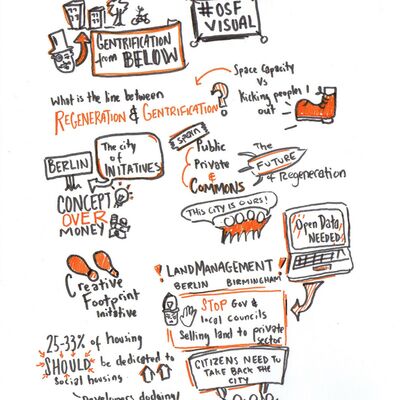 #OSF
VISUAL
GENTRIFICATION
from BELOW
Space Capacity
Vs
Kicking people
out
What is the line between
REGENERATION & GENTRIFICATION?
BERLIN
The city
of
INITATIVES
CONCEPT
OVER
MONEY
SPAIN
Public
Private
&
COMMONS
The
FUTURE
of Regeneration
THIS CITY IS OURS!
Open Data
NEEDED
Creative
Footprint
Initative
! LAND MANAGEMENT !
BERLIN BIRMINGHAM
STOP Gov &
local councils
Selling land to private
sector
25-33% of housing
SHOULD be dedicated to
social housing
Developers dodging
CITIZENS NEED TO
TAKE BACK THE
CITY